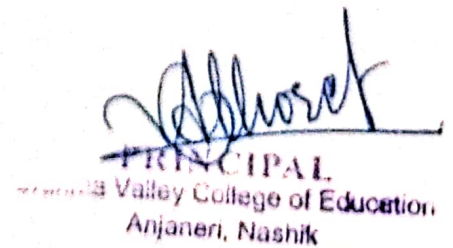 PRINCIPAL
Valley College of Education
Anjaneri, Nashik